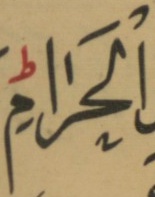 الْحَرَامِ ۭط